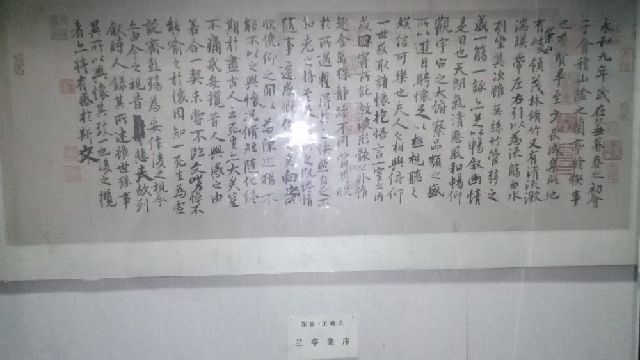 永和九年歲在癸丑暮春之初會
于會稽山陰之蘭亭脩禊事
也羣賢畢至少長咸集此地
有崇山峻領茂林脩竹又有清流激
湍暎帶左右引以為流觴曲水
列坐其次雖無絲竹管弦之
盛一觴一詠亦足以暢敘幽情
是日也天朗氣清惠風和暢仰
觀宇宙之大俯察品類之盛
所以遊目騁懷足以極視聽之
娛信可樂也夫人之相與俯仰
一世或取諸懷抱悟言一室之內
或因寄所託放浪形骸之外雖
趣舍萬殊靜躁不同當其欣
於所遇暫得於己怏然自足不
知老之將至及其所之既惓情
隨事遷感慨係之矣向之所
欣俛仰之閒以為陳迹猶不
能不以之興懷況脩短隨化終
期於盡古人云死生亦大矣豈
不痛哉每攬昔人興感之由
若合一契未嘗不臨文嗟悼不
能喻之於懷固知一死生為虛
誕齊彭殤為妄作後之視今
亦由今之視昔悲夫故列
敘時人錄其所述雖世殊事
異所以興懷其致一也後之攬
者亦將有感於斯文
东晋·王羲之
兰亭集序